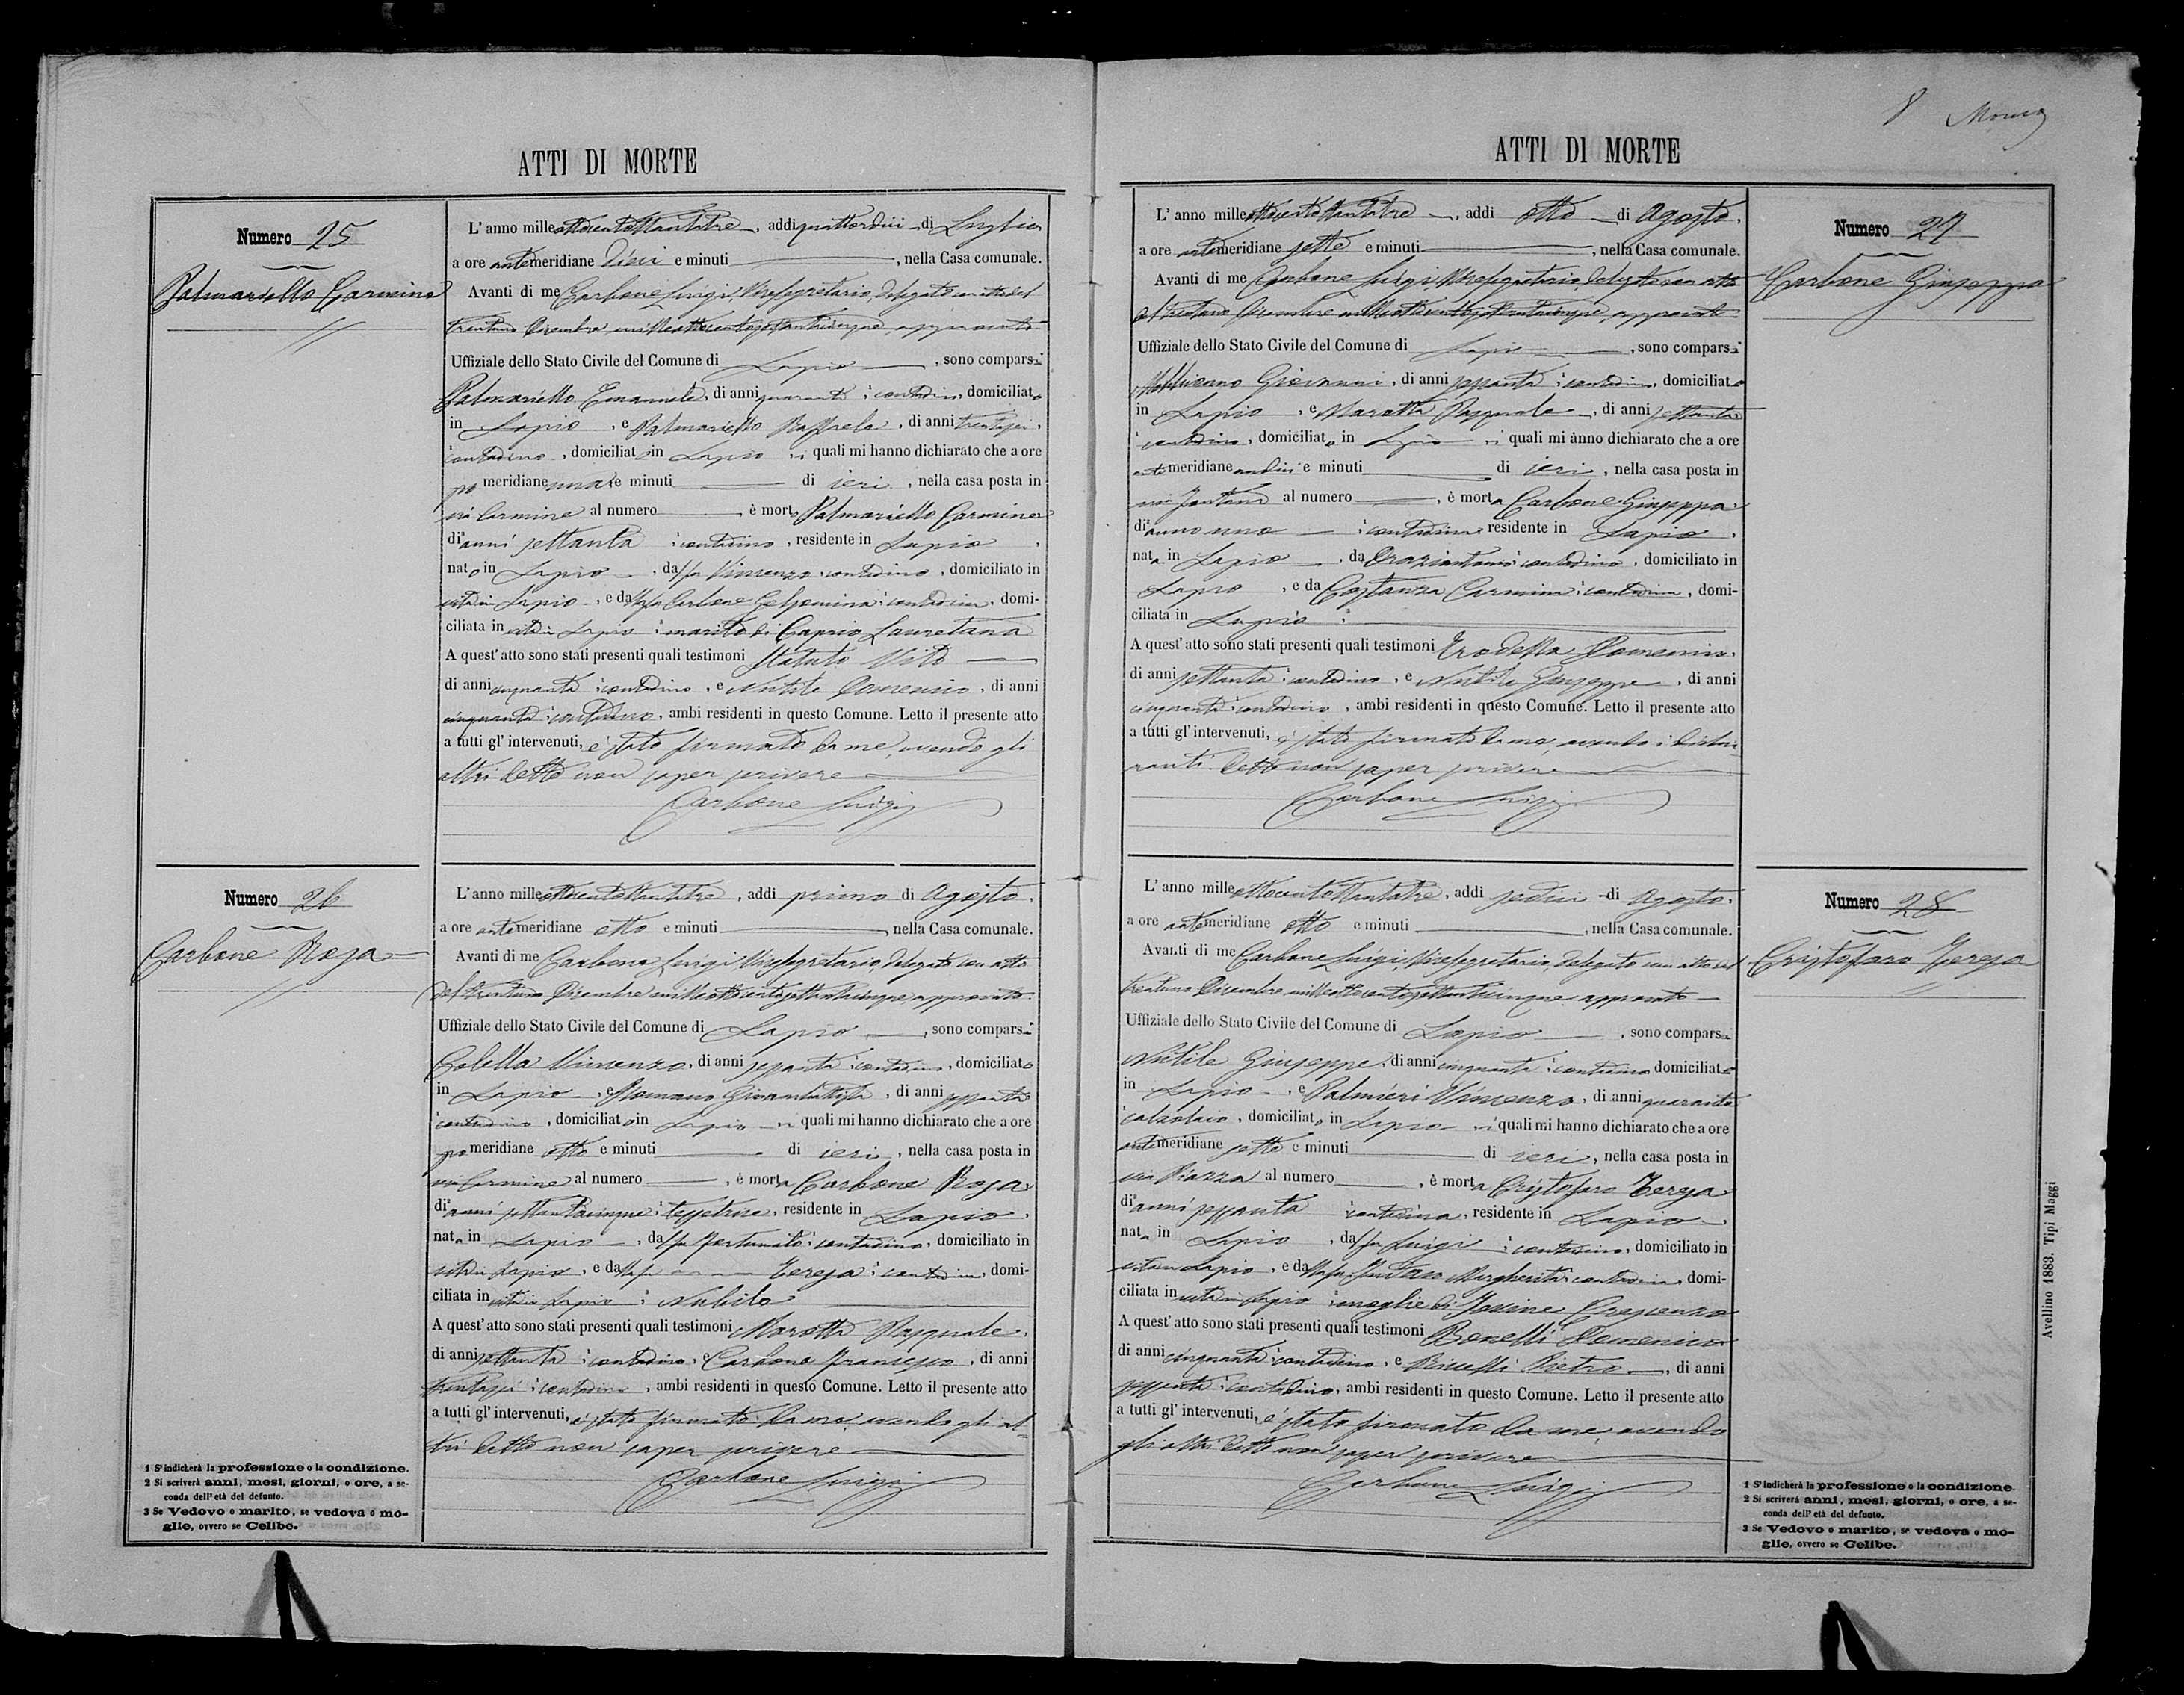 ATTI DI MORTE
Numero 25
Palmariello Carmine
L' anno mille ottocentottantatre, addi quattordici di Luglio
a ore antemeridiane dieci e minuti , nella Casa comunale.
Avanti di me Carbone Luigi Vicesegretario, delegato con atto del
trentuno Dicembre milleottocentosettantacinque, approvato
Uffiziale dello Stato Civile del Comune di Lapio , sono comparsi
Palmariello Emanuele, di anni quaranta, contadino, domiciliato
in Lapio , e Palmariello Raffaele, di anni trentasei,
contadino, domiciliato in Lapio , i quali mi hanno dichiarato che a ore
po meridiane una e minuti di ieri , nella casa posta in
via Carmine al numero è morto Palmariello Carmine
di anni settanta contadino, residente in Lapio ,
nato in Lapio , da fu Vincenzo contadino, domiciliato in
vita in Lapio , e da fu Carbone Gelsomina contadina, domi-
ciliata in vita in Lapio marito di Caprio Lauretana
A quest' atto sono stati presenti quali testimoni Statuto Vito
di anni cinquanta contadino, e Nutile Domenico, di anni
cinquanta contadino, ambi residenti in questo Comune. Letto il presente atto
a tutti gl' intervenuti, è stato firmato da me, avendo gli
altri detto non saper scrivere
Carbone Luigi
Numero 26
Carbone Rosa
L' anno mille ottocentottantatre, addi primo di Agosto,
a ore antemeridiane otto e minuti , nella Casa comunale.
Avanti di me Carbone Luigi Vicesegretario, delegato con atto
del trentuno Dicembre milleottocentosettantacinque, approvato
Uffiziale dello Stato Civile del Comune di Lapio , sono comparsi
Colella Vincenzo, di anni sessanta contadino, domiciliato
in Lapio , e Romano Giovanbattista, di anni sessanta
contadino, domiciliato in Lapio i quali mi hanno dichiarato che a ore
po meridiane otto e minuti di ieri , nella casa posta in
via Carmine al numero , è morta Carbone Rosa
di anni settantacinque tessitrice, residente in Lapio ,
nata in Lapio , da fu Fortunato contadino, domiciliato in
vita in Lapio , e da fu Teresa contadina, domi-
ciliata in vita in Lapio Nubile
A quest' atto sono stati presenti quali testimoni Marotta Pasquale,
di anni settanta contadino, e Carbone Francesco, di anni
trentasei contadino, ambi residenti in questo Comune. Letto il presente atto
a tutti gl' intervenuti, è stato firmato da me, avendo gli al-
tri detto non saper scrivere
Carbone Luigi
1 S'indicherà la professione o la condizione.
2 Si scriverà anni, mesi, giorni, o ore, a se-
conda dell'età del defunto.
3 Se Vedovo o marito, se vedova o mo-
glie, ovvero se Celibe.
8
ATTI DI MORTE
Numero 27
Carbone Giuseppa
L' anno mille ottocentottantatre , addi otto di Agosto,
a ore antemeridiane sette e minuti , nella Casa comunale.
Avanti di me Carbone Luigi, Vicesegretario, delegato con atto
del trentuno Dicembre milleottocentosettantacinque, approvato
Uffiziale dello Stato Civile del Comune di Lapio , sono comparsi
Giovanni, di anni sessanta contadino, domiciliato
in Lapio , e Marotta Pasquale , di anni settanta
contadino, domiciliato in Lapio i quali mi ànno dichiarato che a ore
ante meridiane undici e minuti di ieri , nella casa posta in
via Fontana al numero , è morta Carbone Giuseppa
di anno uno contadina residente in Lapio ,
nata in Lapio , da Oraziantonio contadino, domiciliato in
Lapio , e da Costanza Carmina contadina, domi-
ciliata in Lapio
A quest' atto sono stati presenti quali testimoni Trodella Domenico,
di anni settanta contadino, e Nutile Giuseppe , di anni
cinquanta contadino , ambi residenti in questo Comune. Letto il presente atto
a tutti gl' intervenuti, è stato firmato da me, avendo i dichia-
ranti detto non saper scrivere
Carbone Luigi
Numero 28
Cristofaro Teresa
L' anno mille ottocentottantatre, addi sedici di Agosto,
a ore antemeridiane otto e minuti , nella Casa comunale.
Avanti di me Carbone Luigi, Vicesegretario, delegato con atto del
trentuno Dicembre milleottocentosettantacinque approvato
Uffiziale dello Stato Civile del Comune di Lapio , sono comparsi
Nutile Giuseppe, di anni cinquanta contadino domiciliato
in Lapio , e Palmieri Vincenzo, di anni quaranta
calzolaio, domiciliato in Lapio , i quali mi ànno dichiarato che a ore
antemeridiane sette e minuti di ieri, nella casa posta in
via Piazza al numero , è morta Cristofaro Teresa
di anni sessanta contadina, residente in Lapio ,
nata in Lapio , da fu Luigi contadino, domiciliato in
vita in Lapio , e da fu Margherita contadina, domi-
ciliata in vita in Lapio moglie di Iovine Crescenzo
A quest' atto sono stati presenti quali testimoni Bonelli Domenico
di anni cinquanta contadino, e Pietro , di anni
sessanta contadino, ambi residenti in questo Comune. Letto il presente atto
a tutti gl' intervenuti, è stato firmato da me, avendo
gli altri detto non saper scrivere
Carbone Luigi
1 S'indicherà la professione o la condizione.
2 Si scriverà anni, mesi, giorni, o ore, a se-
conda dell'età del defunto.
3 Se Vedovo o marito, se vedova o mo-
glie, ovvero se Celibe.
Avellino 1883. Tipi Maggi